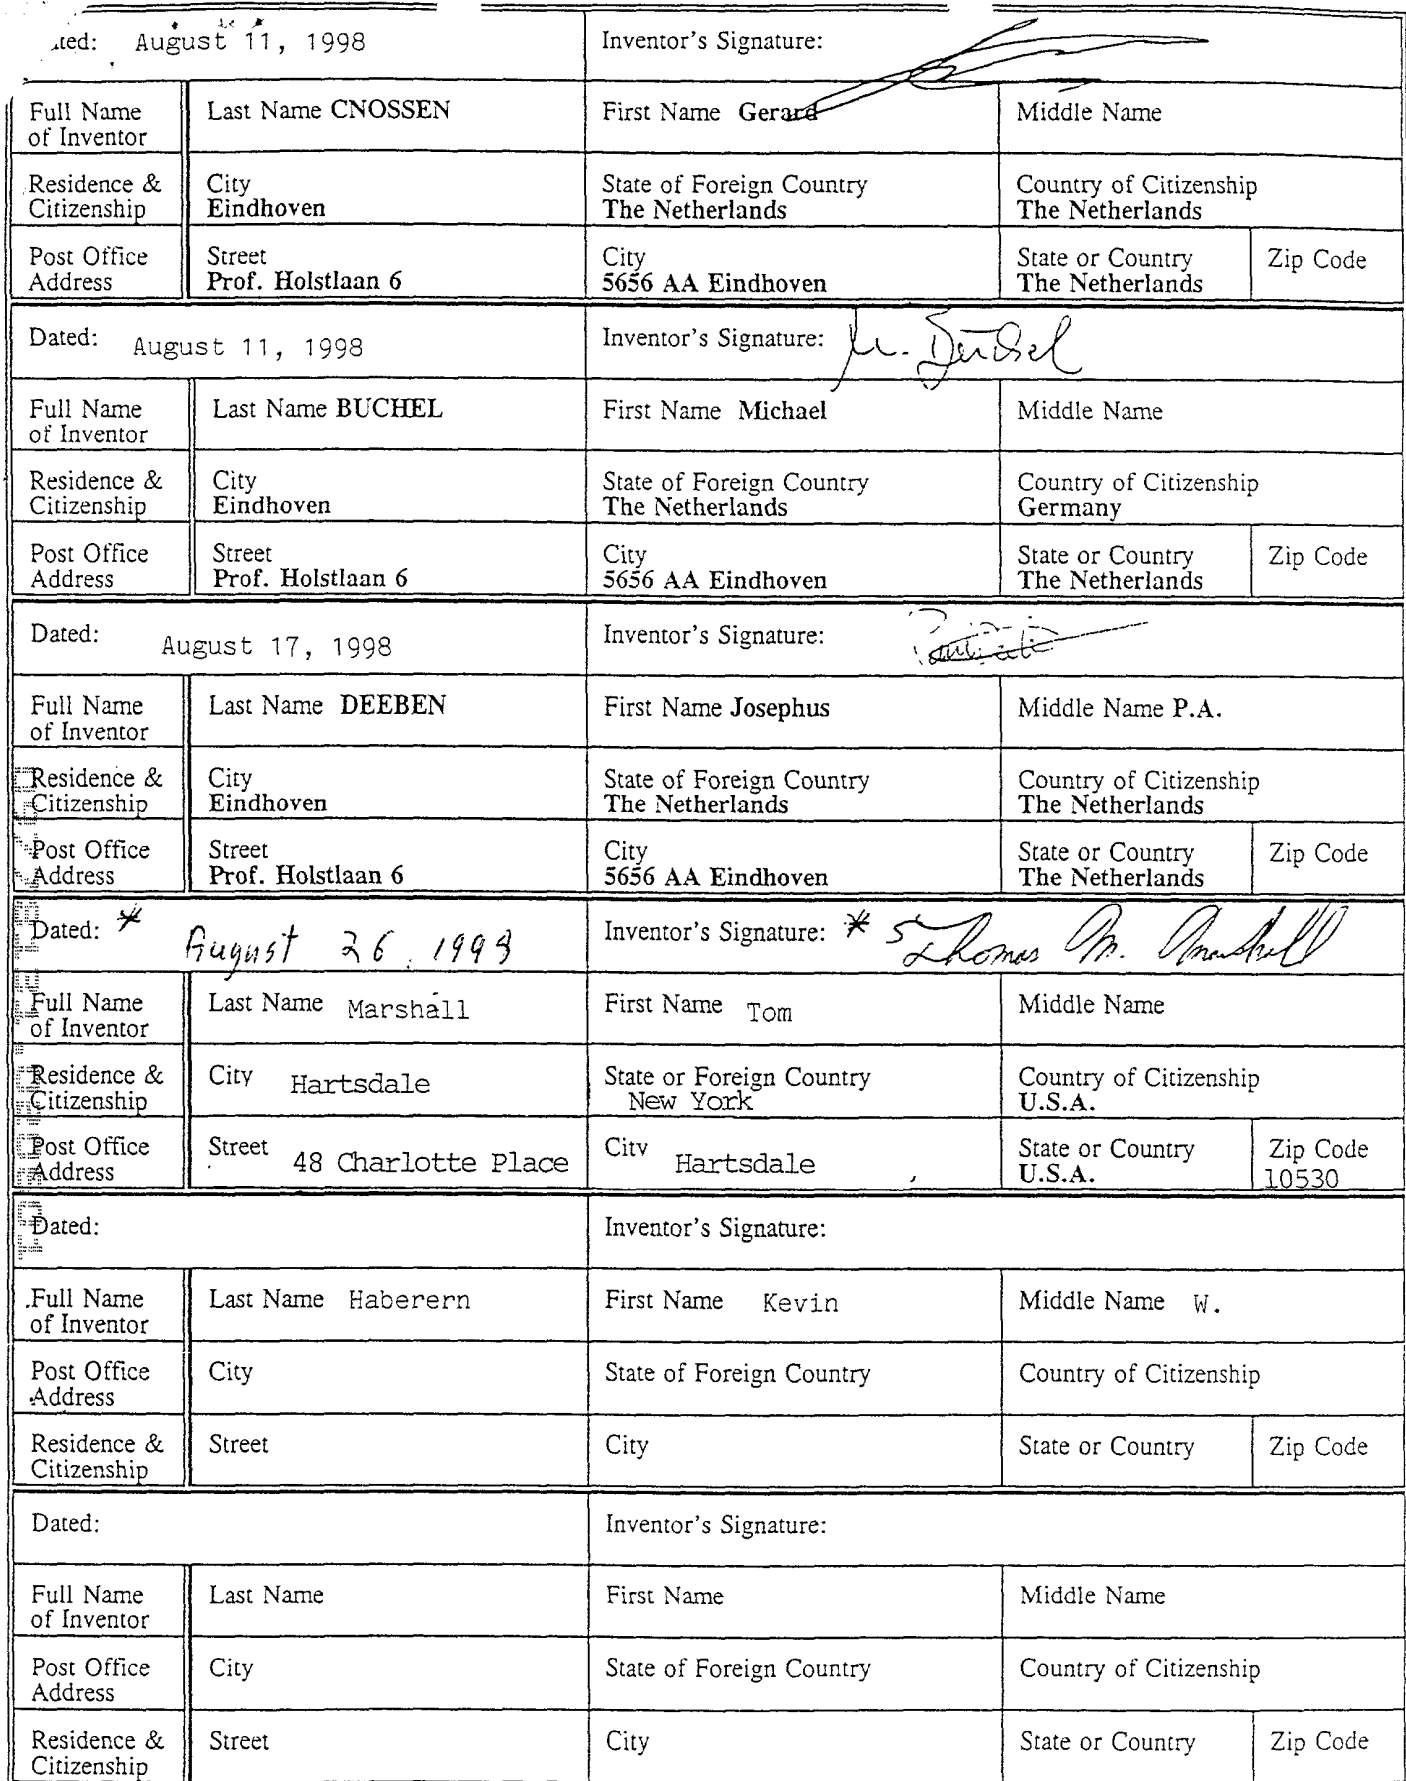 ated: August 11, 1998 Inventor's Signature:
Full Name of Inventor Last Name CNOSSEN First Name Gerard Middle Name
Residence & Citizenship City Eindhoven State of Foreign Country The Netherlands Country of Citizenship The Netherlands
Post Office Address Street Prof. Holstlaan 6 City 5656 AA Eindhoven State or Country The Netherlands Zip Code
Dated: August 11, 1998 Inventor's Signature: M. Büchel
Full Name of Inventor Last Name BUCHEL First Name Michael Middle Name
Residence & Citizenship City Eindhoven State of Foreign Country The Netherlands Country of Citizenship Germany
Post Office Address Street Prof. Holstlaan 6 City 5656 AA Eindhoven State or Country The Netherlands Zip Code
Dated: August 17, 1998 Inventor's Signature:
Full Name of Inventor Last Name DEEBEN First Name Josephus Middle Name P.A.
Residence & Citizenship City Eindhoven State of Foreign Country The Netherlands Country of Citizenship The Netherlands
Post Office Address Street Prof. Holstlaan 6 City 5656 AA Eindhoven State or Country The Netherlands Zip Code
Dated: * August 26, 1998 Inventor's Signature: * Thomas M. Marshall
Full Name of Inventor Last Name Marshall First Name Tom Middle Name
Residence & Citizenship City Hartsdale State or Foreign Country New York Country of Citizenship U.S.A.
Post Office Address Street 48 Charlotte Place City Hartsdale State or Country U.S.A. Zip Code 10530
Dated: Inventor's Signature:
Full Name of Inventor Last Name Haberern First Name Kevin Middle Name W.
Post Office Address City State of Foreign Country Country of Citizenship
Residence & Citizenship Street City State or Country Zip Code
Dated: Inventor's Signature:
Full Name of Inventor Last Name First Name Middle Name
Post Office Address City State of Foreign Country Country of Citizenship
Residence & Citizenship Street City State or Country Zip Code